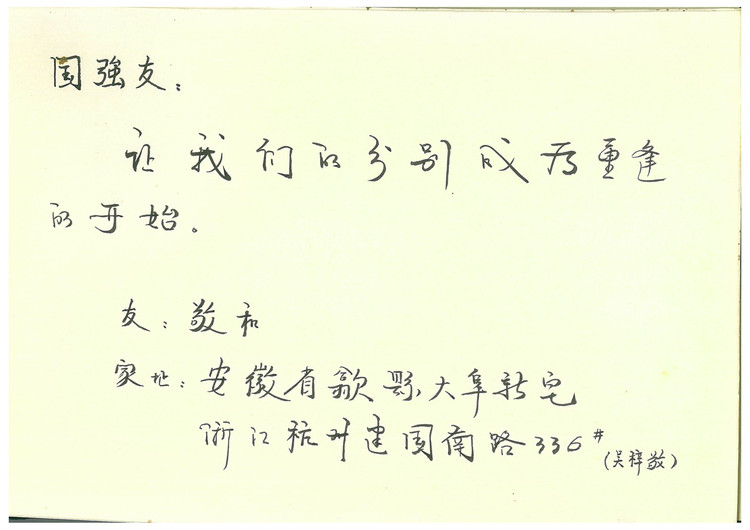 国強友：
让我们的分别成为重逢
的开始。
友：敬和
家址：安徽省歙县大阜新宅
浙江杭州建国南路336#
(吴梓敬)